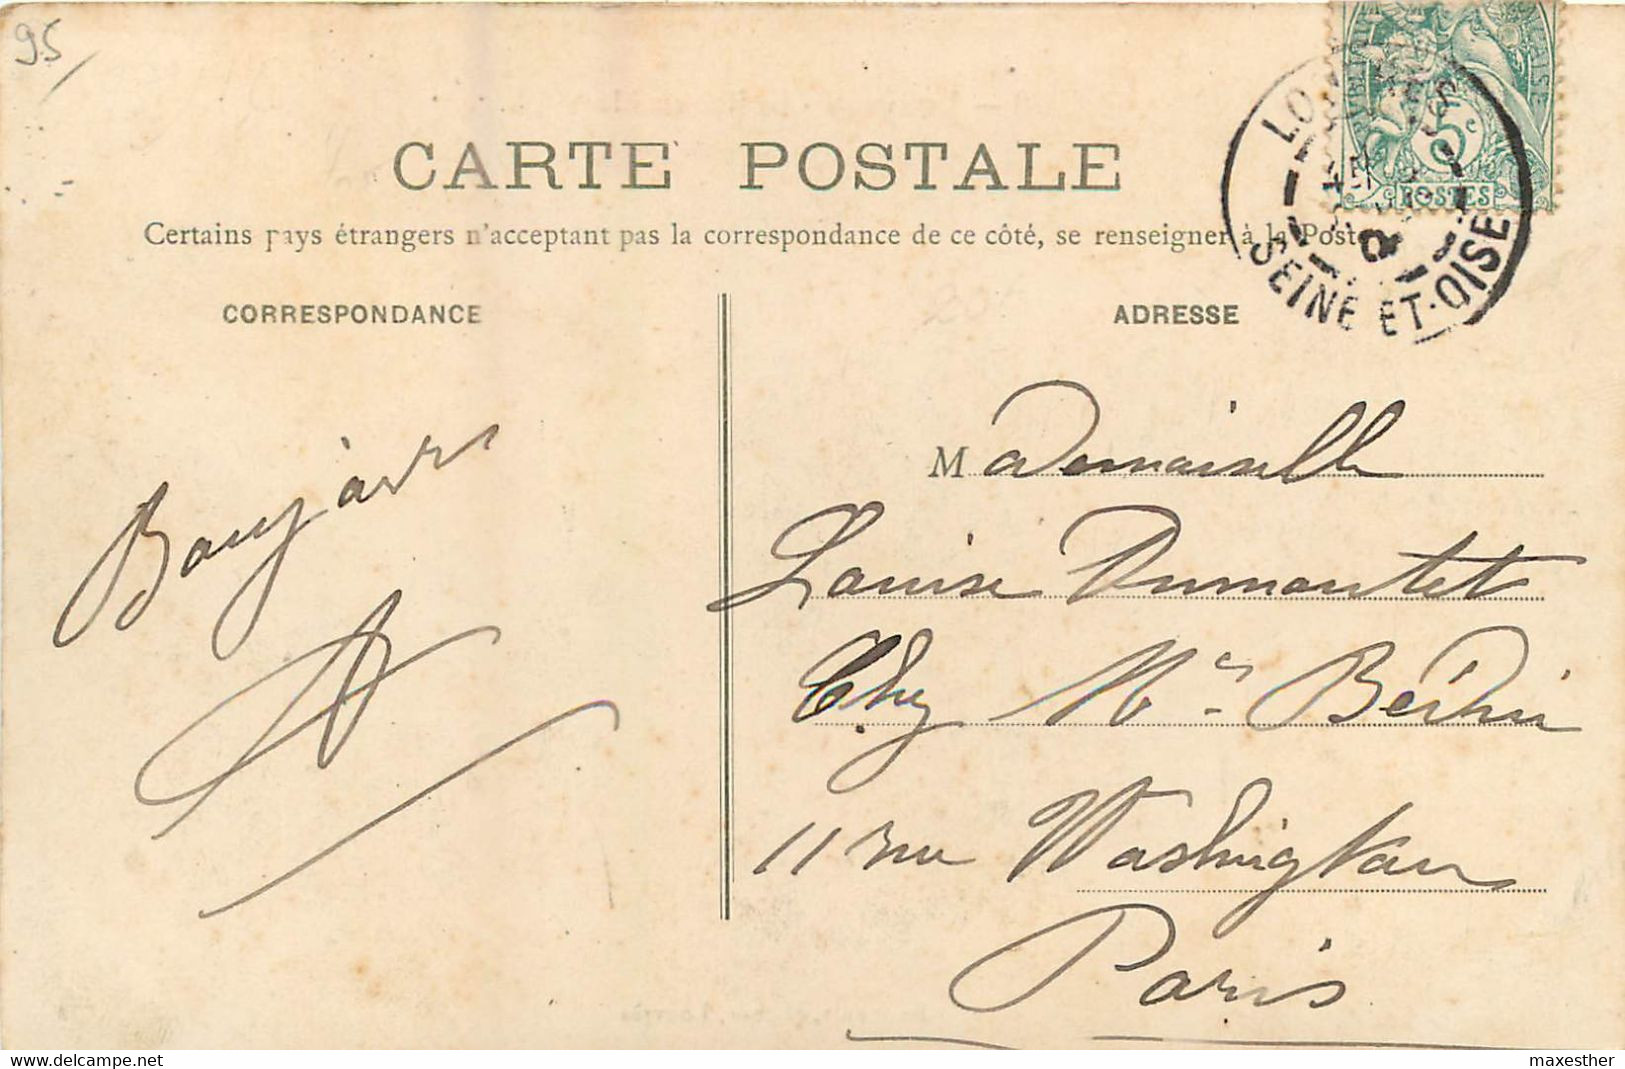 95
CARTE POSTALE
Certains pays étrangers n'acceptant pas la correspondance de ce côté, se renseigner à la Poste
CORRESPONDANCE
ADRESSE
5c
POSTES
SEINE ET-OISE
Bonjour
Mademoiselle
Louise Dumontet
Chez Mr
11 rue Washington
Paris
delcampe.net
maxesther